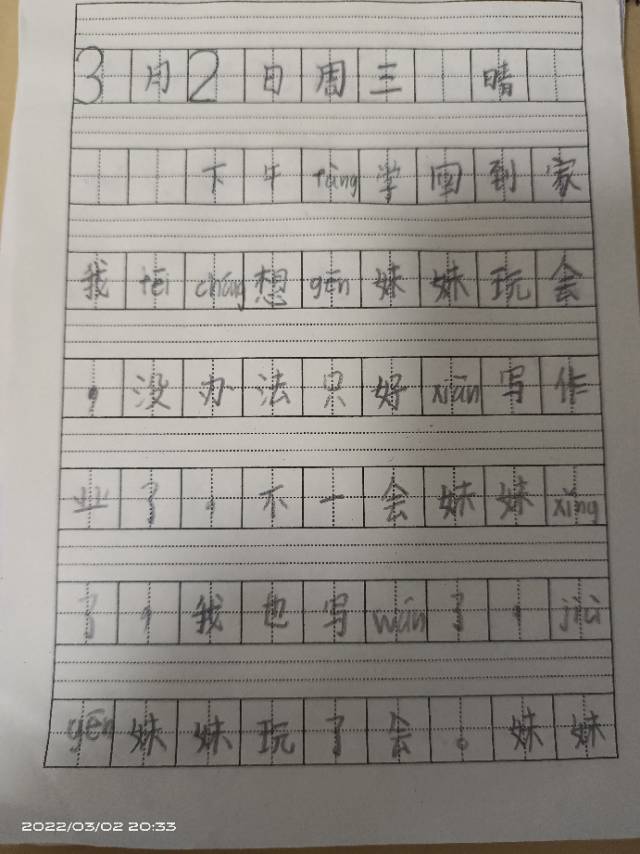 3月2日周三 晴
下午fàng学回到家
我fēi cháng想gēn妹妹玩会
，没办法只好xiān写作
业了，不一会妹妹xǐng
了，我也写wán了，jiù
gēn妹妹玩了会。妹妹
2022/03/02 20:33